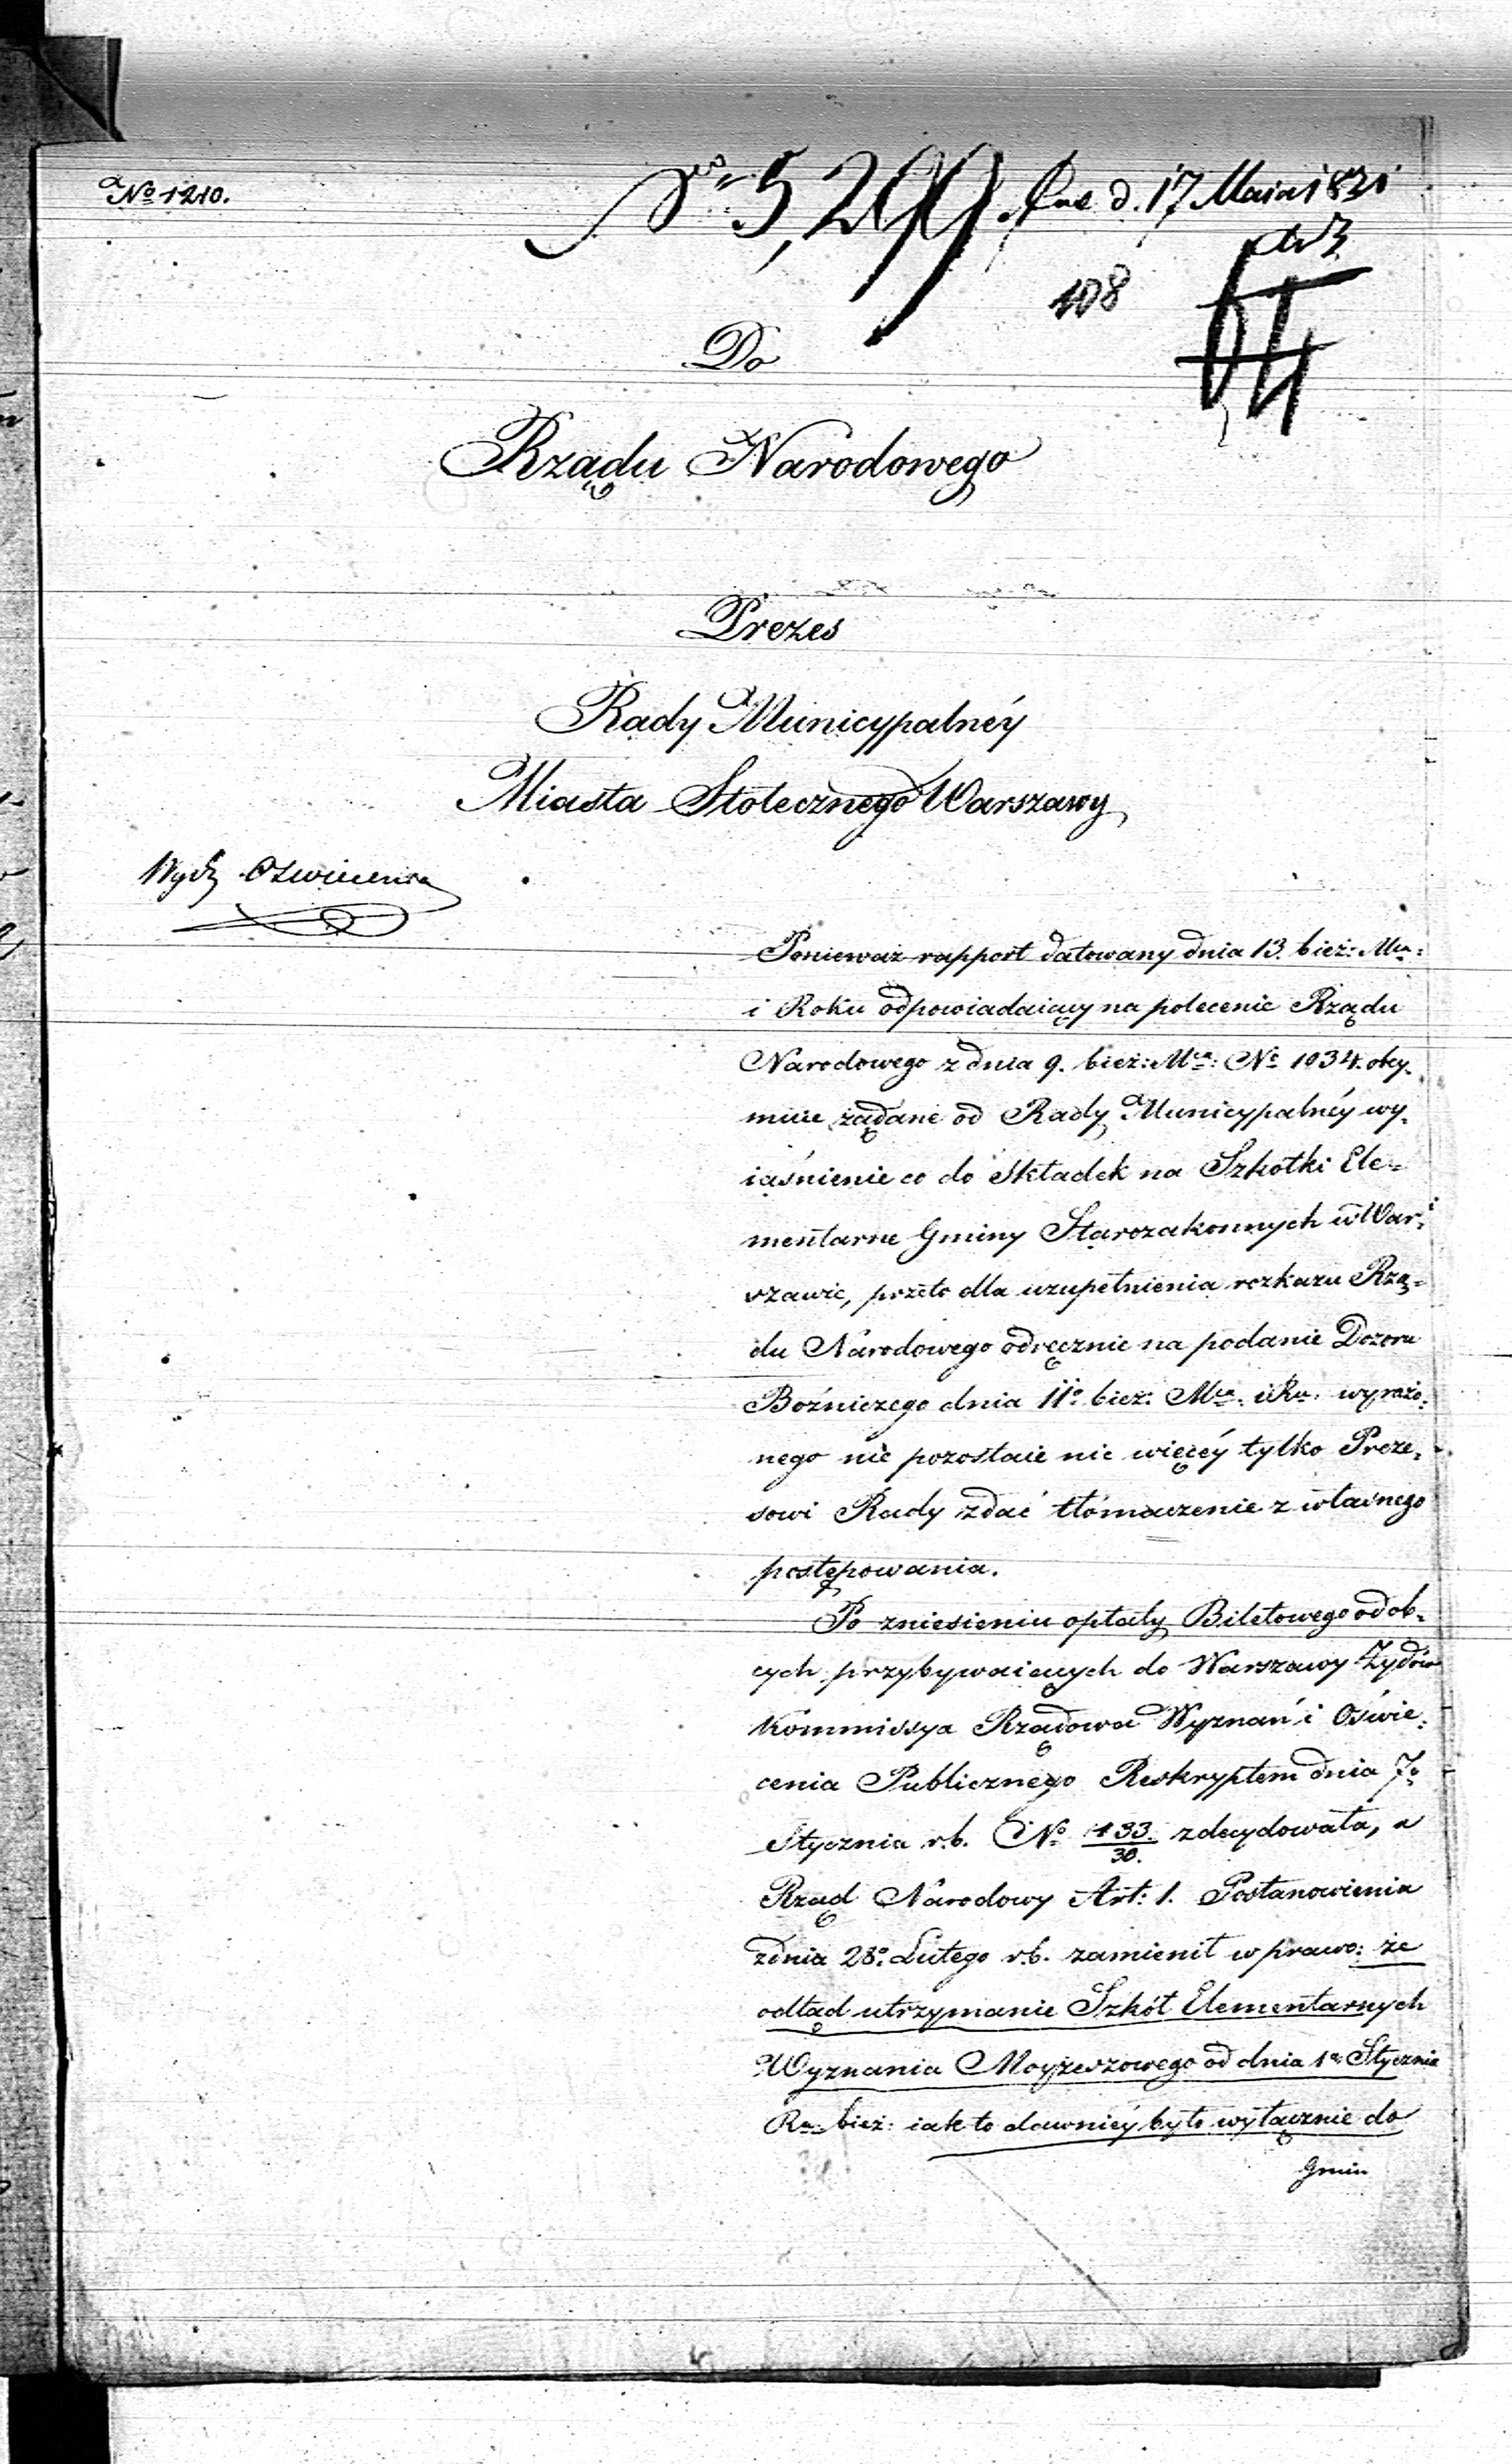 No 1210.
No 5,299. d. 17 Maia 1831
108
64
Do
Rządu Narodowego
Prezes
Rady Municypalnéy
Miasta Stołecznego Warszawy
Wydz Oświecenia
Ponieważ rapport datowany dnia 13. bież: Mca:
i Roku odpowiadaiący na polecenie Rządu
Narodowego z dnia 9. bież: Mca: No 1034. obey-
muie żądane od Rady Municypalnéy wy-
iaśnienie co do składek na Szkołki Ele-
mentarne Gminy Starozakonnych w War-
szawie, przeto dla uzupełnienia rozkazu Rzą-
du Narodowego odręcznie na podanie Dozoru
Bożniczego dnia 11o bież: Mca: i Ru: wyrażo-
nego nie pozostaie nic więcéy tylko Preze-
sowi Rady zdać tłómaczenie z własnego
postępowania.
Po zniesieniu opłaty Biletowego od ob-
cych przybywaiących do Warszawy Żydów
Kommissya Rządowa Wyznań i Oświe-
cenia Publicznego Reskryptem dnia 7o
Stycznia r.b. No 133./30. zdecydowała, a
Rząd Narodowy Art: 1. Postanowienia
z dnia 28o Lutego r.b. zamienił w prawo: że
odtąd utrzymanie Szkół Elementarnych
Wyznania Moyżeszowego od dnia 1o Stycznia
Ru: bież: iak to dawniéy było wyłącznie do
Gmin